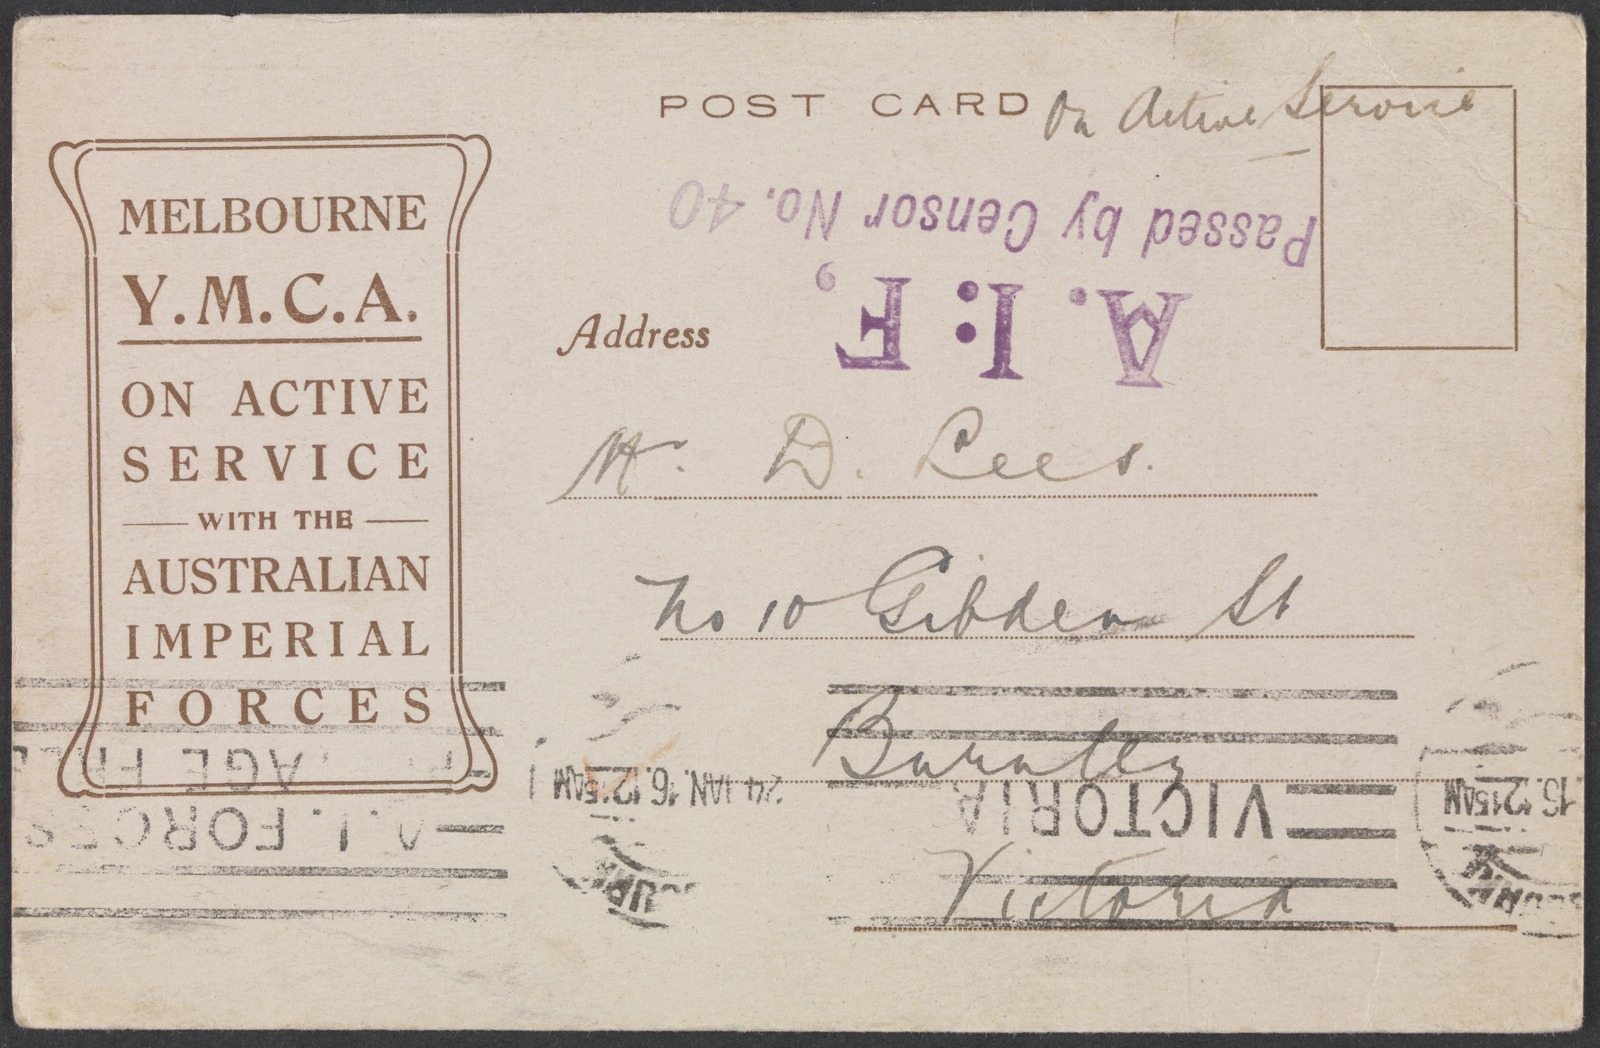 POST CARD On Active Service
MELBOURNE
Y.M.C.A.
ON ACTIVE
SERVICE
WITH THE
AUSTRALIAN
IMPERIAL
FORCES
Passed by Censor No. 40
A. I: F,
Address
Mr. D. Lees.
No 10 Gibden St
Burnley
Victoria
A.I. FORCES
AGE FREE
24 JAN 16. 12.15AM
VICTORIA
16. 12.15AM